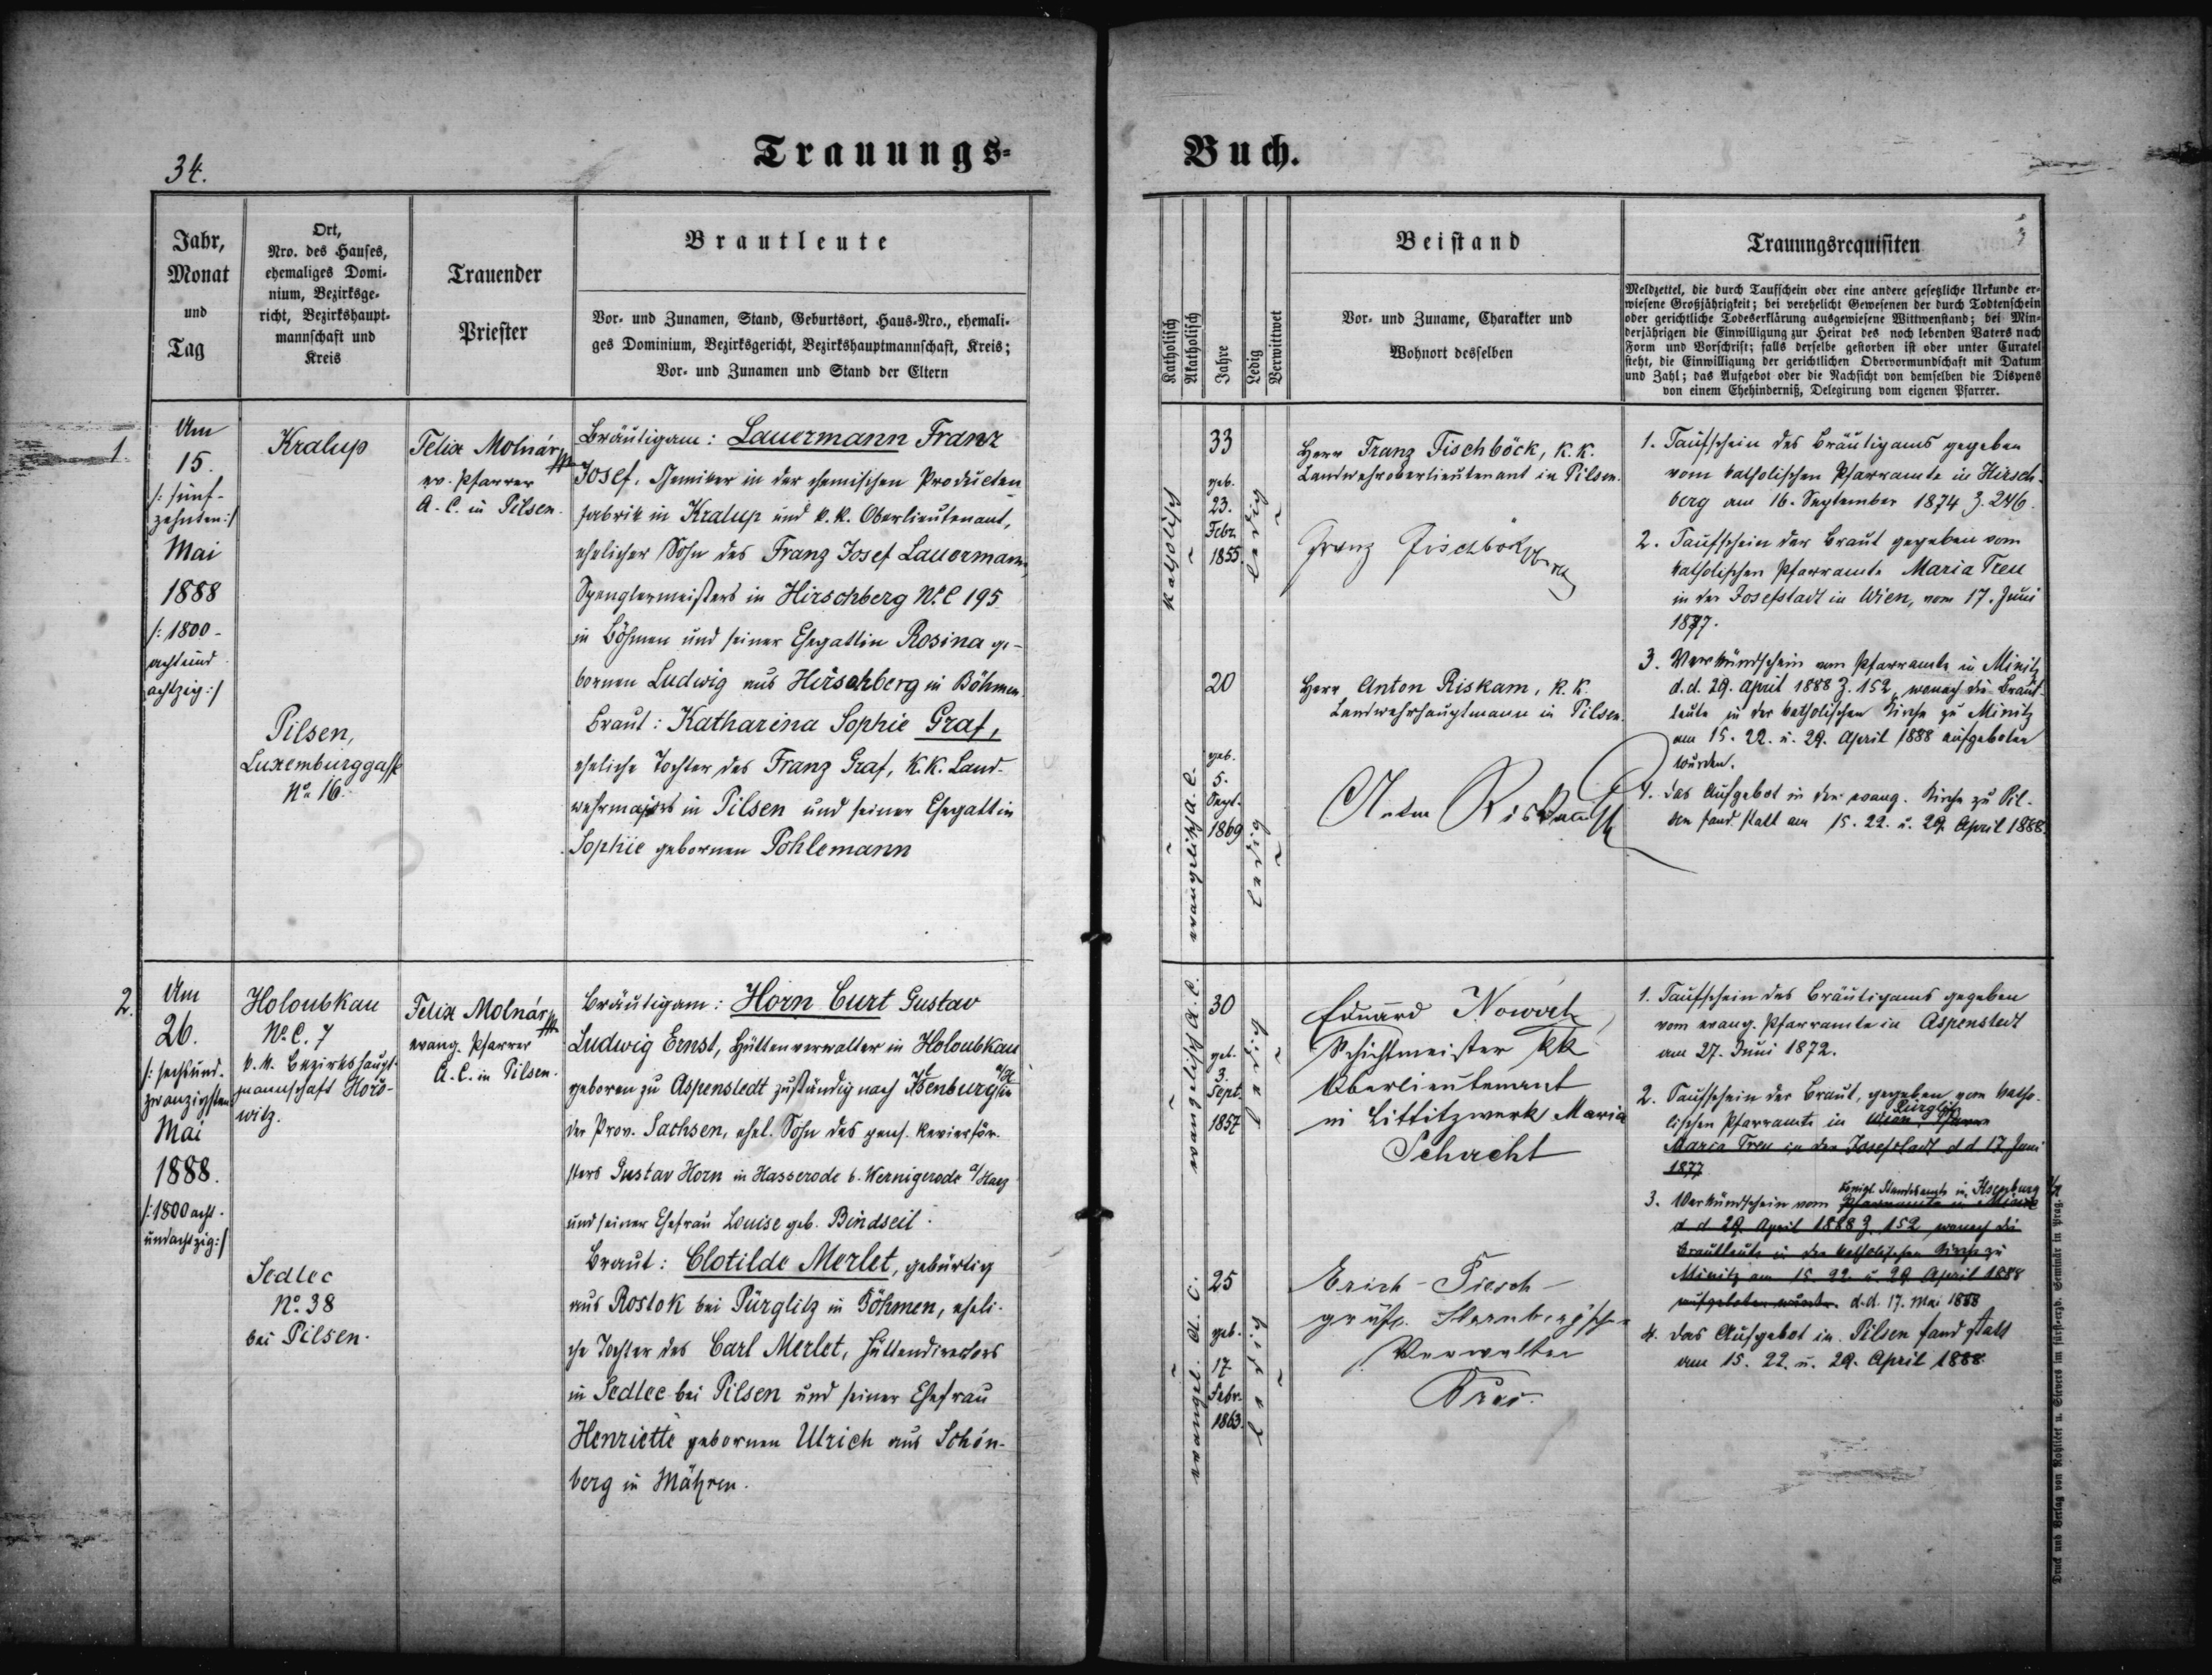 34.
Trauungs-
Buch.
Jahr,
Monat
und
Tag
Ort,
Nro. des Hauses,
ehemaliges Domi-
nium, Bezirksge-
richt, Bezirkshaupt-
mannschaft und
Kreis
Trauender
Priester
Brautleute
Vor- und Zunamen, Stand, Geburtsort, Haus-Nro., ehemali-
ges Dominium, Bezirksgericht, Bezirkshauptmannschaft, Kreis;
Vor- und Zunamen und Stand der Eltern
Katholisch
Akatholisch
Jahre
Ledig
Verwittwet
Beistand
Vor- und Zuname, Charakter und
Wohnort desselben
Trauungsrequisiten
Meldzettel, die durch Taufschein oder eine andere gesetzliche Urkunde er-
wiesene Großjährigkeit; bei verehelicht Gewesenen der durch Todtenschein
oder gerichtliche Todeserklärung ausgewiesene Wittwenstand; bei Min-
derjährigen die Einwilligung zur Heirat des noch lebenden Vaters nach
Form und Vorschrift; falls derselbe gestorben ist oder unter Curatel
steht, die Einwilligung der gerichtlichen Obervormundschaft mit Datum
und Zahl; das Aufgebot oder die Nachsicht von demselben die Dispens
von einem Ehehinderniß, Delegirung vom eigenen Pfarrer.
1
Am
15.
/: fünf-
zehnten :/
Mai
1888
/: 1800-
achtund
achtzig :/
Kralup
Pilsen,
Luxemburggasse
No. 16.
Felix Molnár
ev. Pfarrer
A. C. in Pilsen.
Bräutigam: Lauermann Franz
Josef, Chemiker in der chemischen Producten
fabrik in Kralup und k. k. Oberlieutenant,
ehelicher Sohn des Franz Josef Lauermann,
Spenglermeisters in Hirschberg N.C 195
in Böhmen und seiner Ehegattin Rosina ge-
bornen Ludwig aus Hirschberg in Böhmen.
Braut: Katharina Sophie Graf,
eheliche Tochter des Franz Graf, K. K. Land-
wehrmajors in Pilsen und seiner Ehegattin
Sophie gebornen Pohlemann
katholisch
33
geb.
23.
Febr.
1855.
ledig
evangelisch A. C.
20
geb.
5.
Sept.
1869
ledig
Herr Franz Fischböck, K. K.
Landwehroberlieutenant in Pilsen.
Franz Fischböck
Herr Anton Riskam, K. K.
Landwehrhauptmann in Pilsen.
Anton Riskam
1. Taufschein des Bräutigams gegeben
vom katholischen Pfarramte in Hirsch-
berg am 16. September 1874 Z. 246.
2. Taufschein der Braut gegeben vom
katholischen Pfarramte Maria Treu
in der Josefstadt in Wien, vom 17. Juni
1877.
3. Verkündschein vom Pfarramte in Minitz
d. d. 29. April 1888 Z. 152, wonach die Braut-
leute in der katholischen Kirche zu Minitz
am 15. 22. u. 29. April 1888 aufgeboten
wurden.
4. das Aufgebot in der evang. Kirche zu Pil-
sen fand statt am 15. 22. u. 29. April 1888.
2.
Am
26.
/: sechsund-
zwanzigsten
Mai
1888.
/: 1800 acht-
undachtzig :/
Holoubkau
No. C. 7
k. k. Bezirkshaupt-
mannschaft Hořo-
witz.
Sedlec
No. 38
bei Pilsen.
Felix Molnár
evang. Pfarrer
A. C. in Pilsen.
Bräutigam: Horn Curt Gustav
Ludwig Ernst, Hüttenverwalter in Holoubkau
geboren zu Aspenstedt zuständig nach Ilsenburg a/H in
der Prov. Sachsen, ehel. Sohn des pens. Revierför-
sters Gustav Horn in Hasserode b. Wernigerode a/Harz
und seiner Ehefrau Louise geb. Bindseil.
Braut: Clotilde Merlet, gebürtig
aus Rostok bei Pürglitz in Böhmen, eheli-
che Tochter des Carl Merlet, Hüttendirectors
in Sedlec bei Pilsen und seiner Ehefrau
Henriette gebornen Ulrich aus Schön-
berg in Mähren.
evangelisch A. C.
30
geb.
3.
Sept.
1857
ledig
evangel. A. C.
25
geb.
17
Febr.
1863.
ledig
Eduard Nowak
Schichtmeister kk
Oberlieutenant
in Littitzwerk Maria
Schacht
Erich Piesch
gräfl. Sternberg'scher
Verwalter
1. Taufschein des Bräutigams gegeben
vom evang. Pfarramte in Aspenstedt
am 27. Juni 1872.
2. Taufschein der Braut, gegeben vom katho-
lischen Pfarramte in Wien Pfarre Pürglitz
Maria Treu in der Josefstadt d. d. 17. Juni
1877
3. Verkündschein vom Pfarramte in Minitz königl. Standesamte in Ilsenburg a/H
d. d. 29. April 1888 Z. 152, wonach die
Brautleute in der katholischen Kirche zu
Minitz am 15. 22. u. 29. April 1888
aufgeboten wurden. d. d. 17. Mai 1888
4. das Aufgebot in Pilsen fand statt
am 15. 22. u. 29. April 1888.